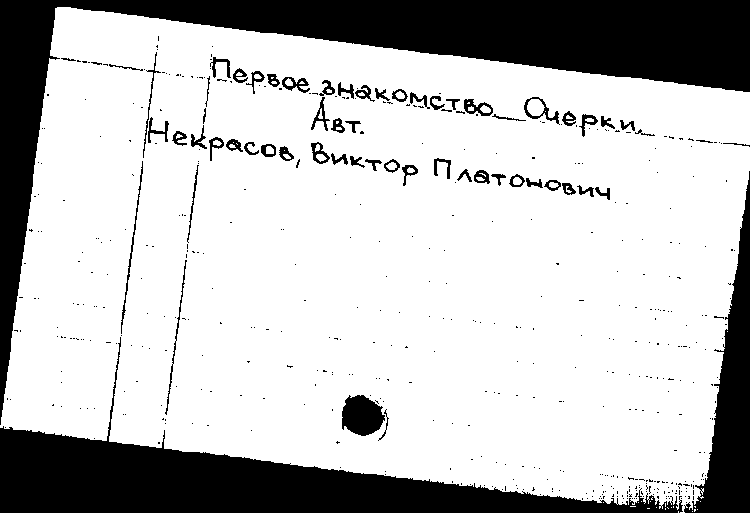 Первое знакомство Очерки.
Авт.
Некрасов, Виктор Платонович